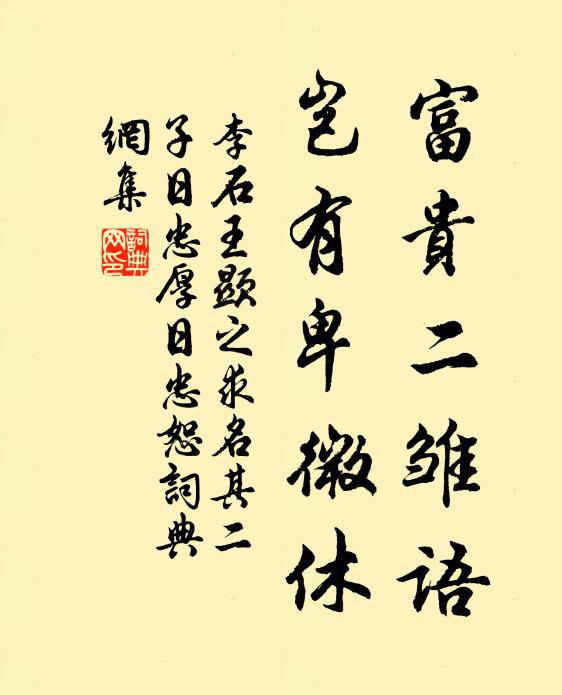 富貴二雏語
岂有卑微休
李石王顯之求名其二
子日忠厚日忠恕詞典
網集
詞典網印